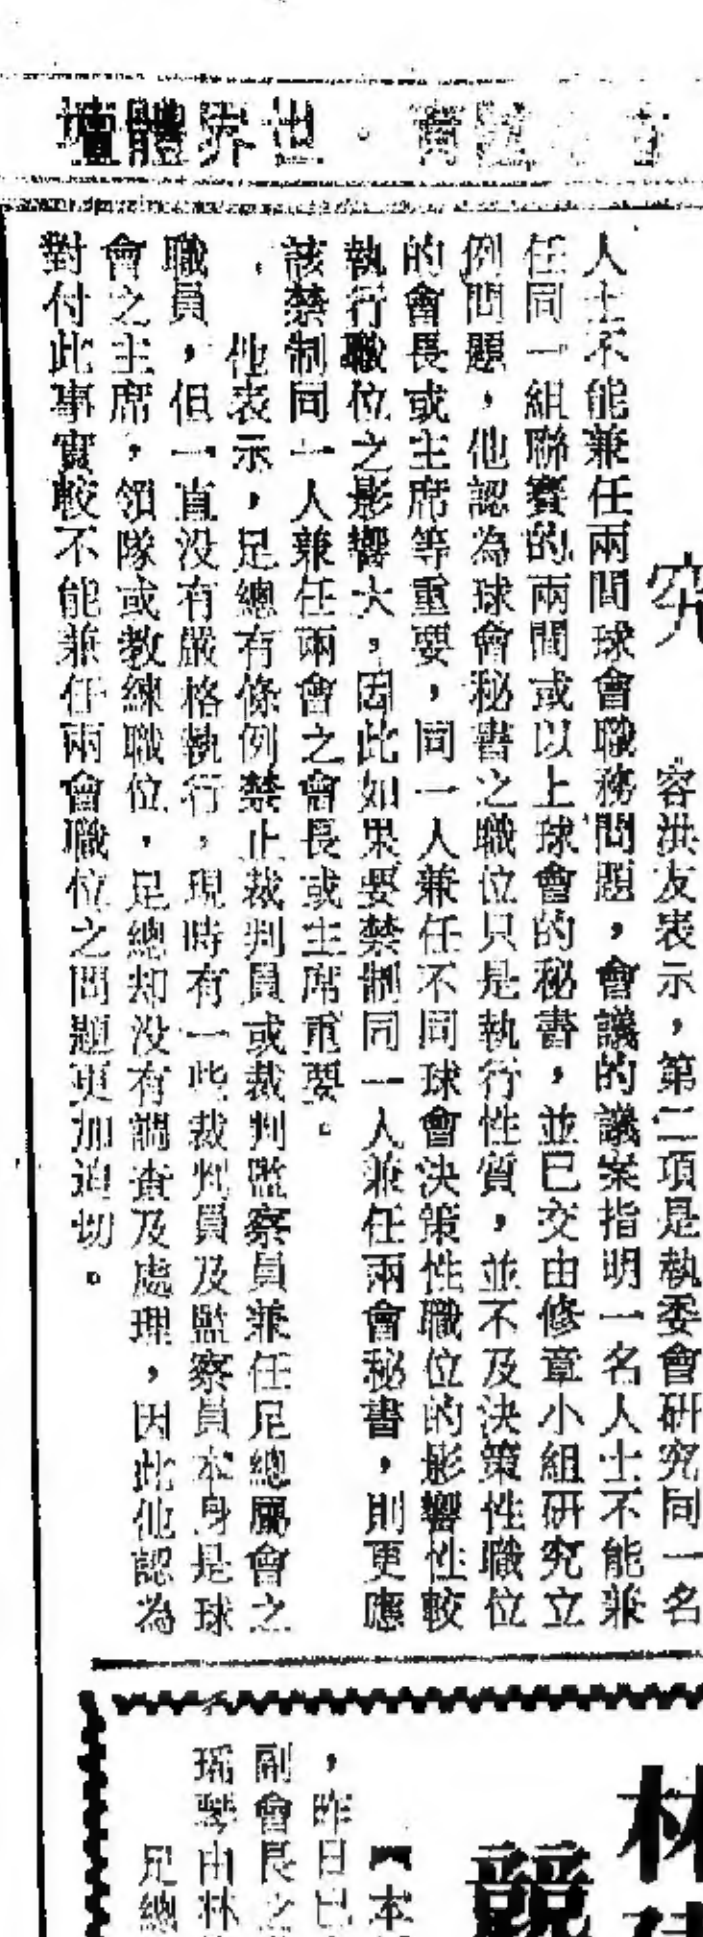 世界體壇
究
容洪友表示，第二項是執委會研究同一名
人士不能兼任兩間球會職務問題，會議的議案指明一名人士不能兼
任同一組聯賽的兩間或以上球會的秘書，並已交由修章小組研究立
例問題，他認為球會秘書之職位只是執行性質，並不及決策性職位
的會長或主席等重要，同一人兼任不同球會決策性職位的影響性較
執行職位之影響大，因此如果要禁制同一人兼任兩會秘書，則更應
該禁制同一人兼任兩會之會長或主席重要。
他表示，足總有條例禁止裁判員或裁判監察員兼任足總屬會之
職員，但一直没有嚴格執行，現時有一些裁判員及監察員本身是球
會之主席，領隊或教練職位，足總却没有調查及處理，因此他認為
對付此事實較不能兼任兩會職位之問題更加迫切。
林
競
【本
，昨日已
副會長之
瑤琴由林
足總